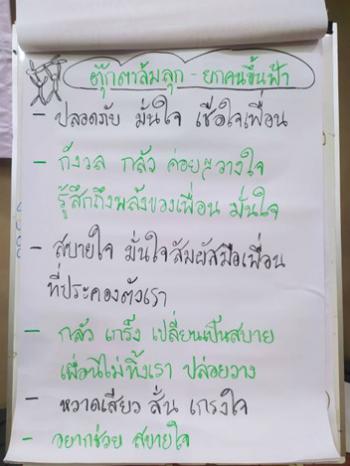 ตุ๊กตาล้มลุก - ยกคนขึ้นฟ้า
- ปลอดภัย มั่นใจ เชื่อใจเพื่อน
- กังวล กลัว ค่อยๆวางใจ
รู้สึกถึงพลังของเพื่อน มั่นใจ
- สบายใจ มั่นใจสัมผัสมือเพื่อน
ที่ประคองตัวเรา
- กลัว เกร็ง เปลี่ยนเป็นสบาย
เพื่อนไม่ทิ้งเรา ปล่อยวาง
- หวาดเสียว สั่น เกรงใจ
- อยากช่วย สบายใจ